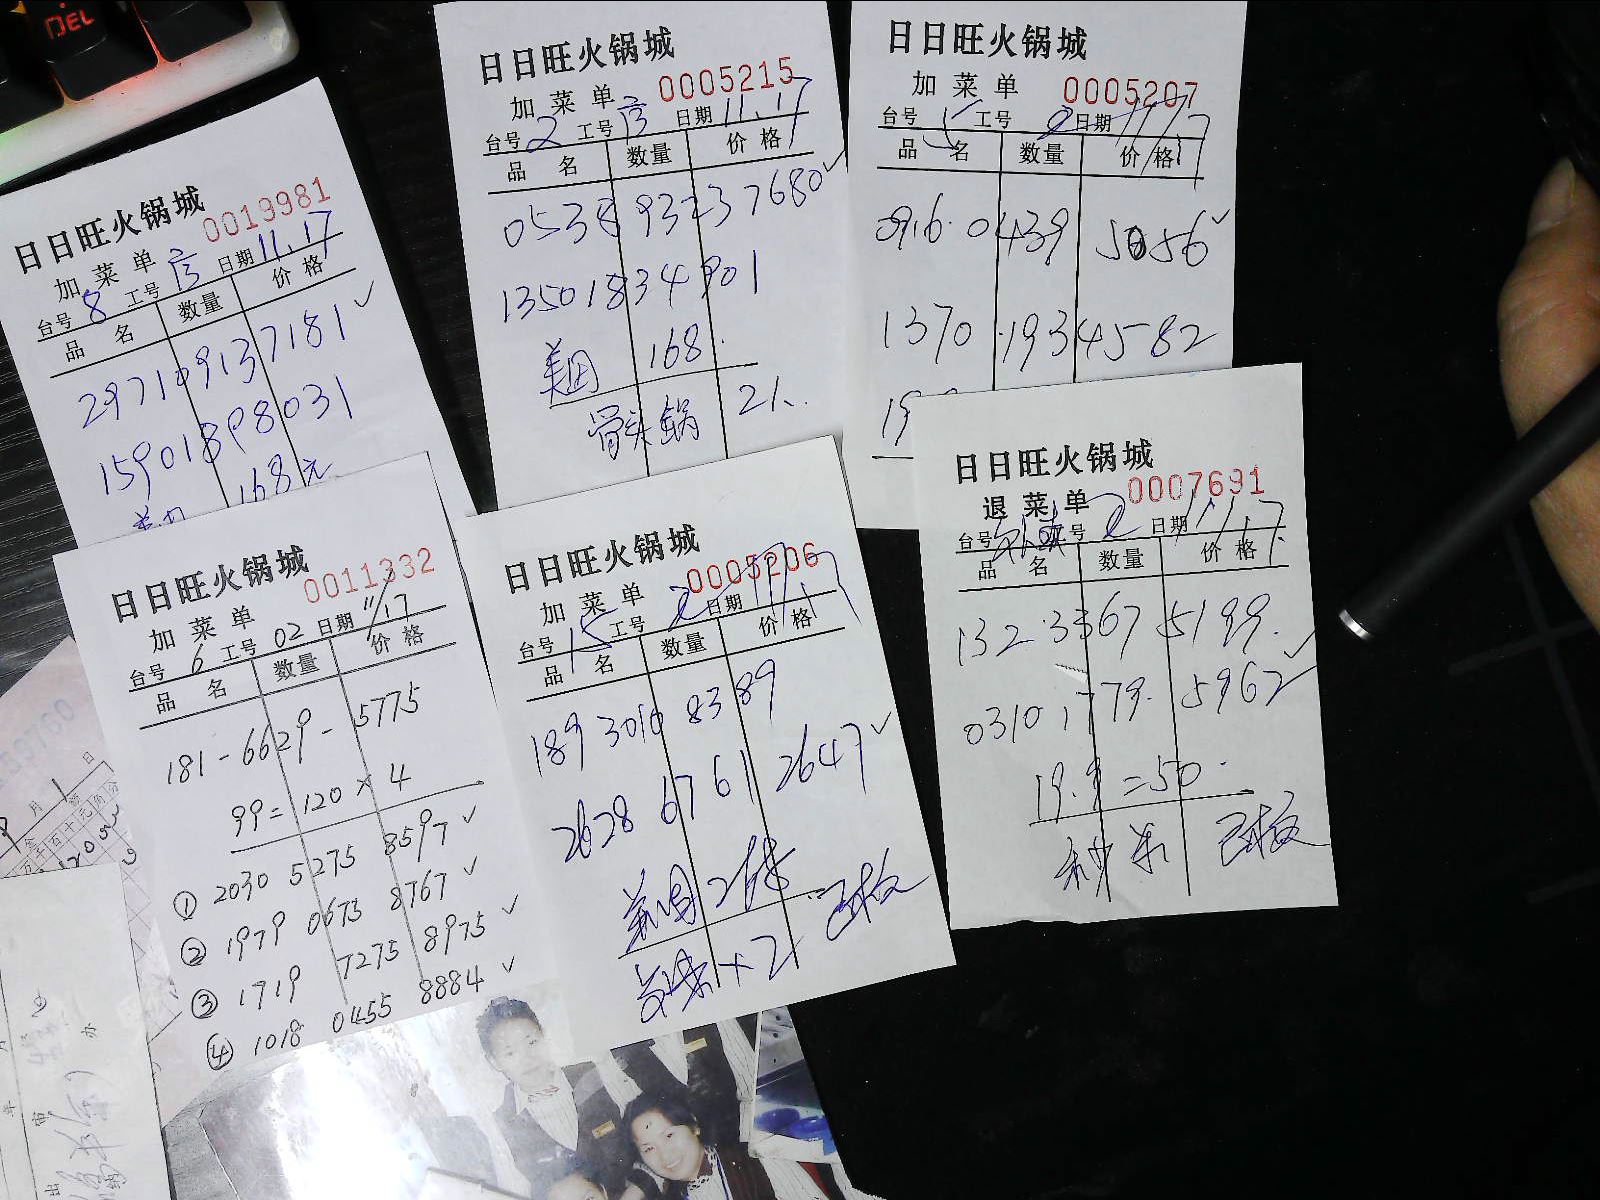 DEL
日日旺火锅城
0019981
加菜单
台号 8 工号 日期 11.17
品名 数量 价格
297109137181 ✓
15901898031
168元
日日旺火锅城
0005215
加菜单
台号 2 工号 日期 11.17
品名 数量 价格
0538 9323 7680 ✓
13501834901
美团 168.
骨头锅 2人.
日日旺火锅城
0005207
加菜单
台号 工号 2 日期 11.17
品名 数量 价格
0916 0439 5056 ✓
1370 1934582
19
日日旺火锅城
0011332
加菜单
台号 6 工号 02 日期 11/17
品名 数量 价格
181-6629-5775
99=120×4
① 2030 5275 8597 ✓
② 1979 0673 8767 ✓
③ 1719 7275 8975 ✓
④ 1018 0455 8884 ✓
日日旺火锅城
0005206
加菜单
台号 15 工号 2 日期 11.17
品名 数量 价格
189 3010 8389
2628 6761 2647 ✓
美团
×2 已核
日日旺火锅城
0007691
退菜单
台号 工号 2 日期 11.17
品名 数量 价格
132 3367 5199.
0310 1779. 5962 ✓
19.9=50.
已核